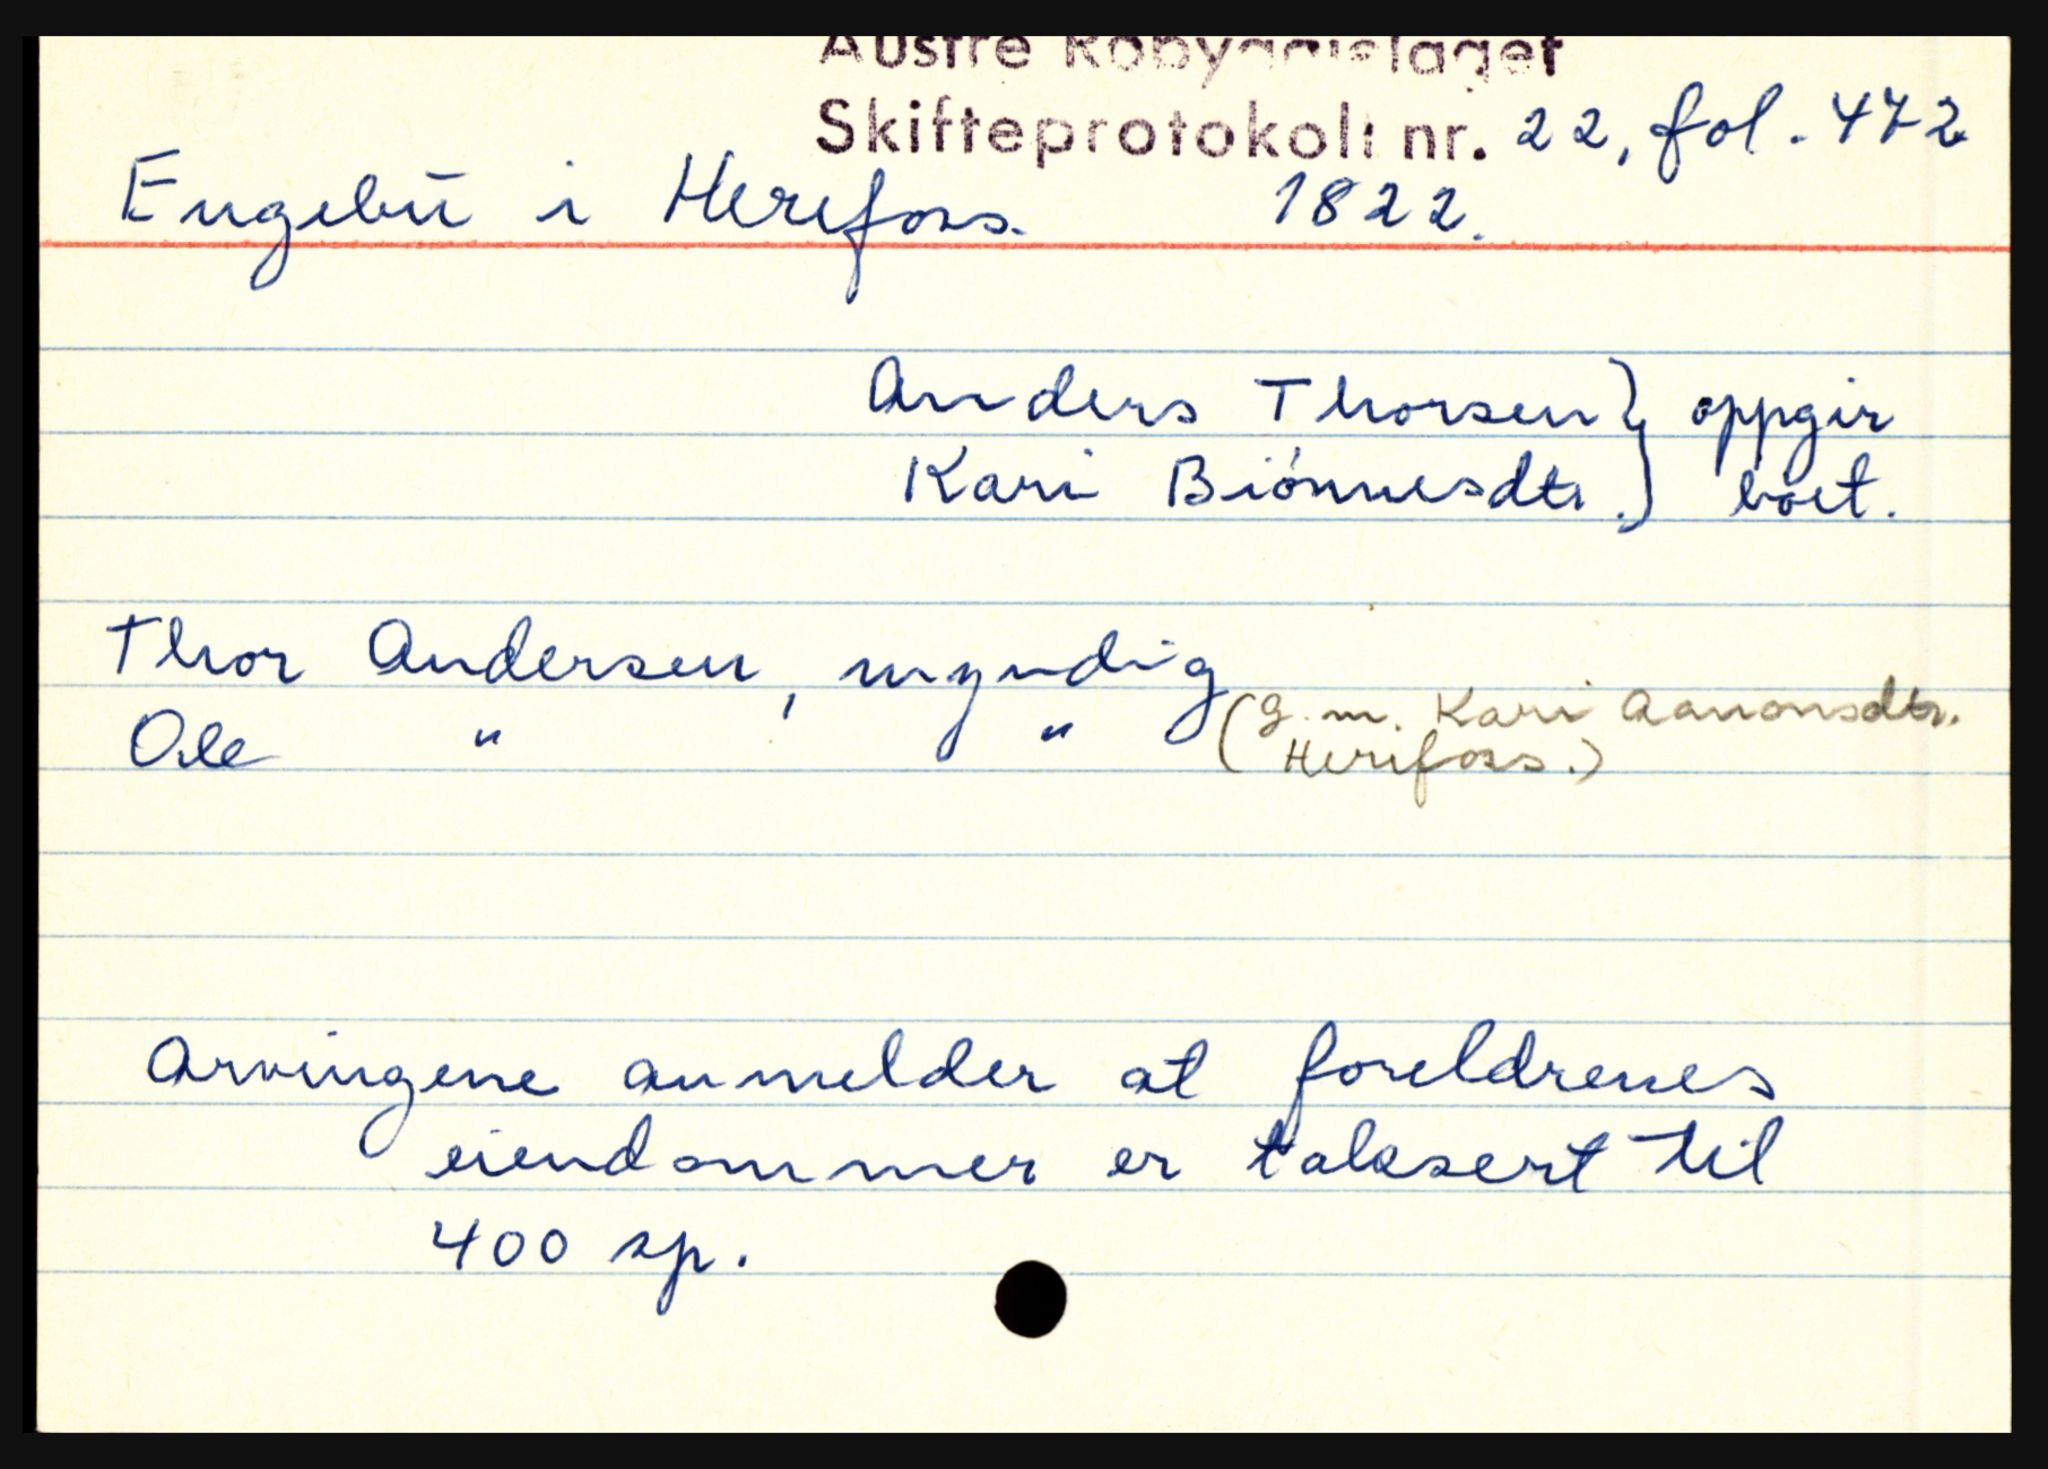 Austre Robyggjelaget
Skifteprotokoll nr. 22, fol. 472
Engebu i Herefoss. 1822.
Anders Thorsen } oppgir
Kari Biónnesdtr. } boet.
Thor Andersen, myndig
Ole " " (g. m. Kari Aanonsdtr.
Herifoss.)
Arvingene anmelder at foreldrenes
eiendommer er taksert til
400 sp.